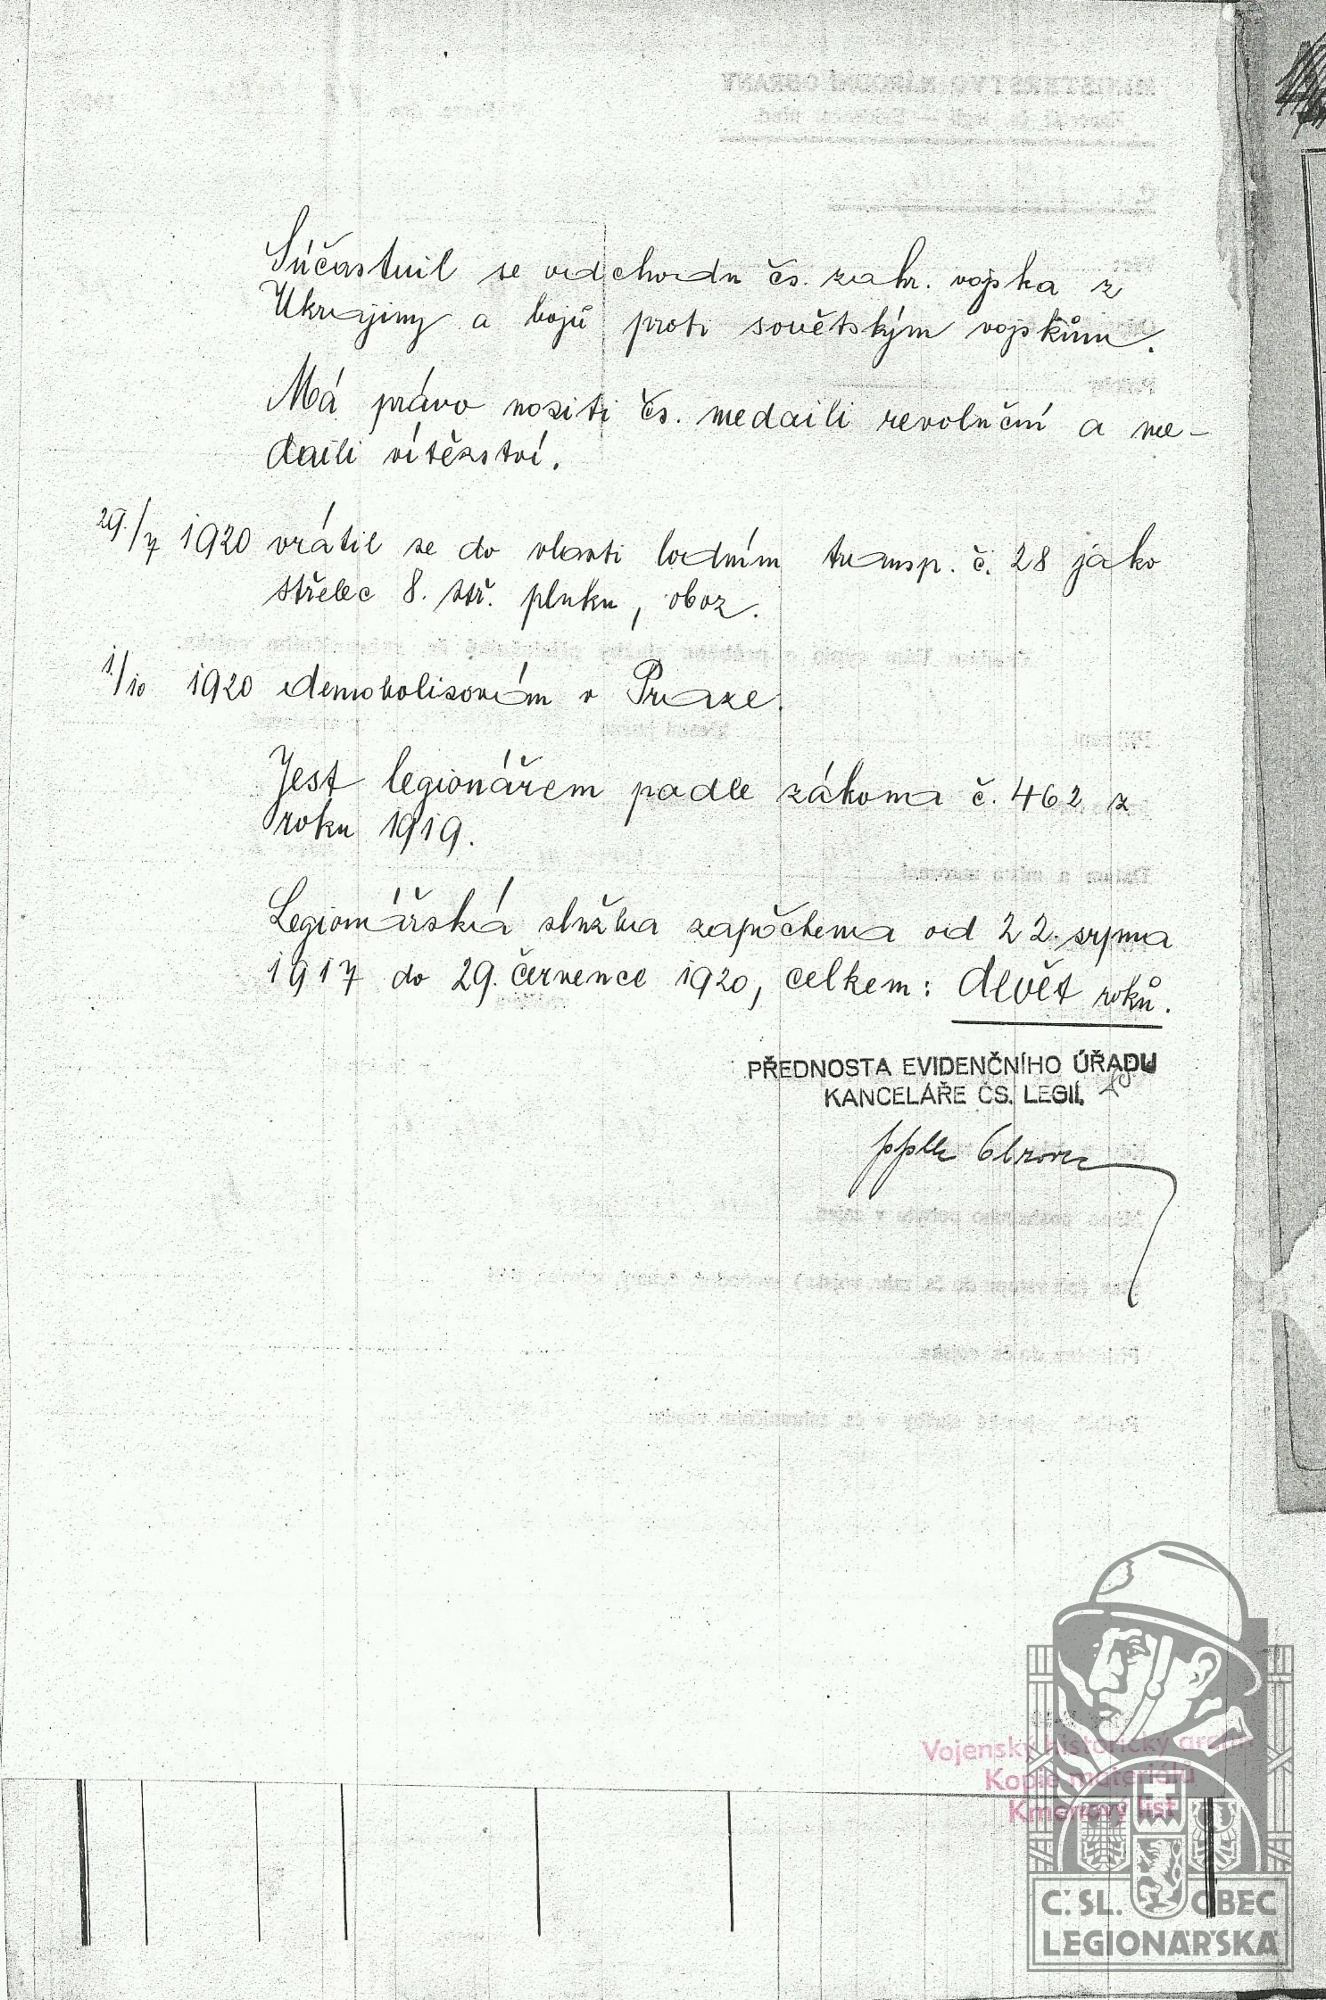 Súčastnil se odchodu čs. zahr. vojska z
Ukrajiny a bojů proti sovětským vojskům.
Má právo nositi čs. medaili revoluční a me-
daili vítězství.
29./7 1920 vrátil se do vlasti lodním transp. č. 28 jako
střelec 8. stř. pluku, oboz.
1./10 1920 demobolisován v Praze.
Jest legionářem podle zákona č. 462 z
roku 1919.
Legionářská služba započtena od 22. srpna
1917 do 29. července 1920, celkem: devět roků.
PŘEDNOSTA EVIDENČNÍHO ÚŘADU
KANCELÁŘE ČS. LEGIÍ.
pplk
Vojenský historický archiv
Kopie materiálů
Kmenový list
Č.SL. OBEC
LEGIONÁŘSKÁ